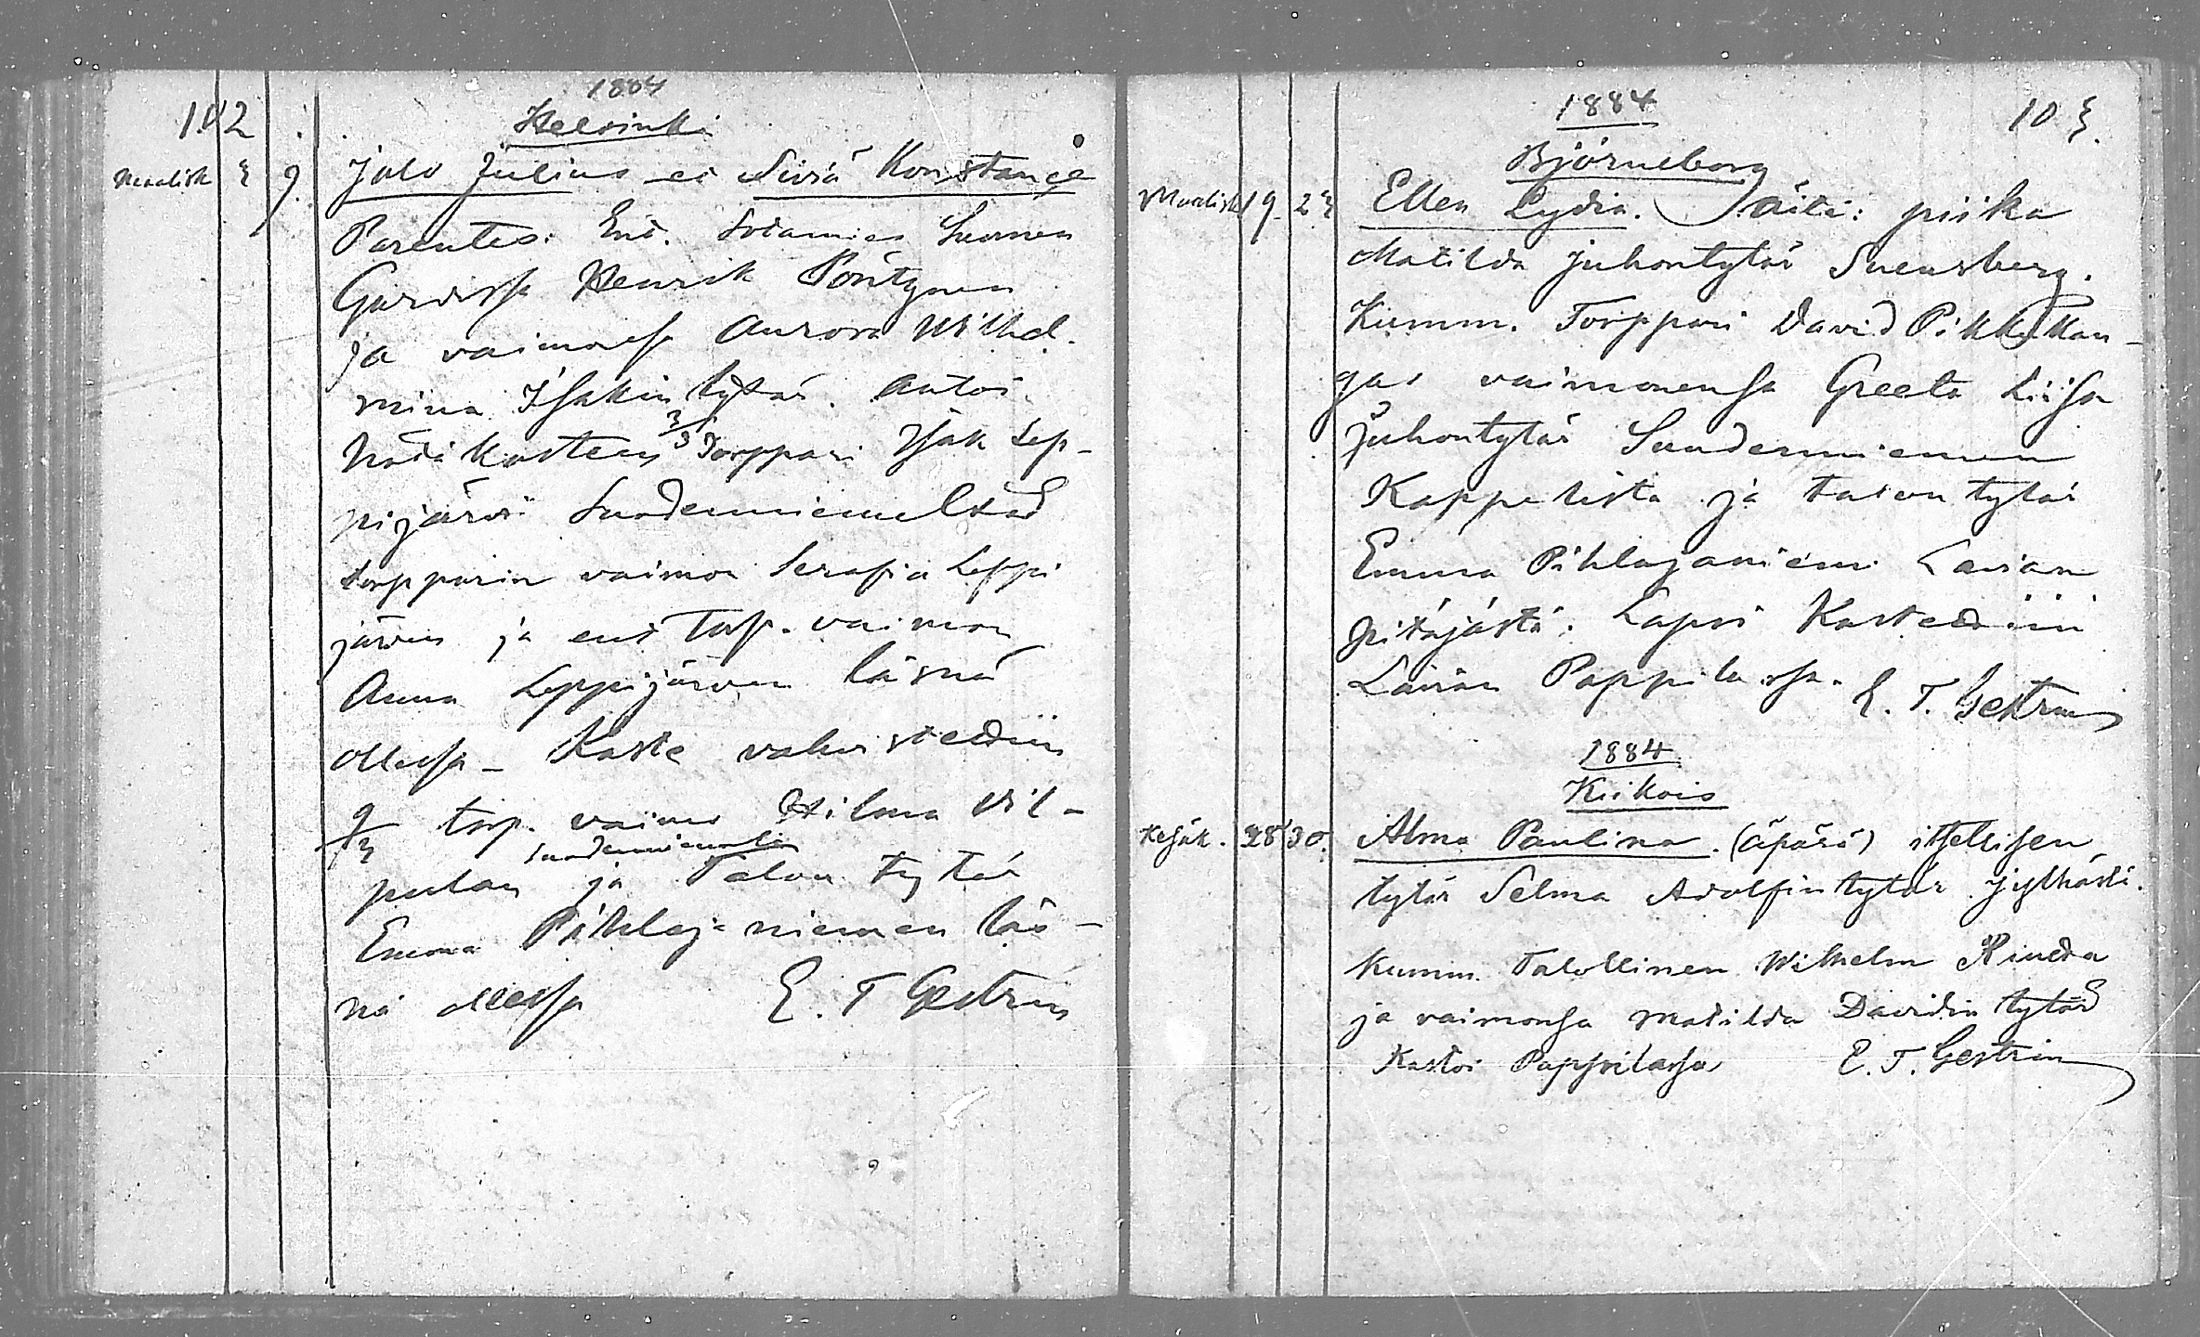 1884
102
Helsinki
Maalisk 3 9. Jalo Julius ei Siviä Konstançe
Parentes: Ent. Sotamies Suomen
Gardissa Henrik Pöntynen
ja vaimonsa Aurora Wilhel.
mina Isakin tytär. Antoi
hätä kasteen 3/3 Torppari Isak Lep-
pijärvi Suodenniemeltä
torpparin vaimon Serafia Leppi
järven ja ent torp. vaimon
Anna Leppijärven läsnä
ollessa - Kaste vahvistettiin
9/3 torp. vaimo Hilma Vil-
Suodenniemeltä
pulan ja Talon tytär
Emma Pihlajaniemen läs-
nä ollessa E. T Gestrin
1884
103.
Björneborg
Maalisk 19. 23 Ellen Lydia. Äiti: piika
Matilda Juhontytär Svensberg.
Kumm. Torppari David Pikkukan-
gas vaimonensa Greeta Liisa
Juhontytär Suodenniemen
Kappelista ja talon tytär
Emma Pihlajaniemi Lavian
pitäjästä. Lapsi Kastettiin
Lavian Pappilassa. E. T. Gestrin
1884
Kiikois
Kesäk. 28 30. Alma Paulina. (äpärä) itsellisen
tytär Selma Adolfin tytär Jylhästä.
Kumm. Talollinen Wilhelm
ja vaimonsa Matilda Davidin tytär
Kastoi Pappilassa E. T. Gestrin